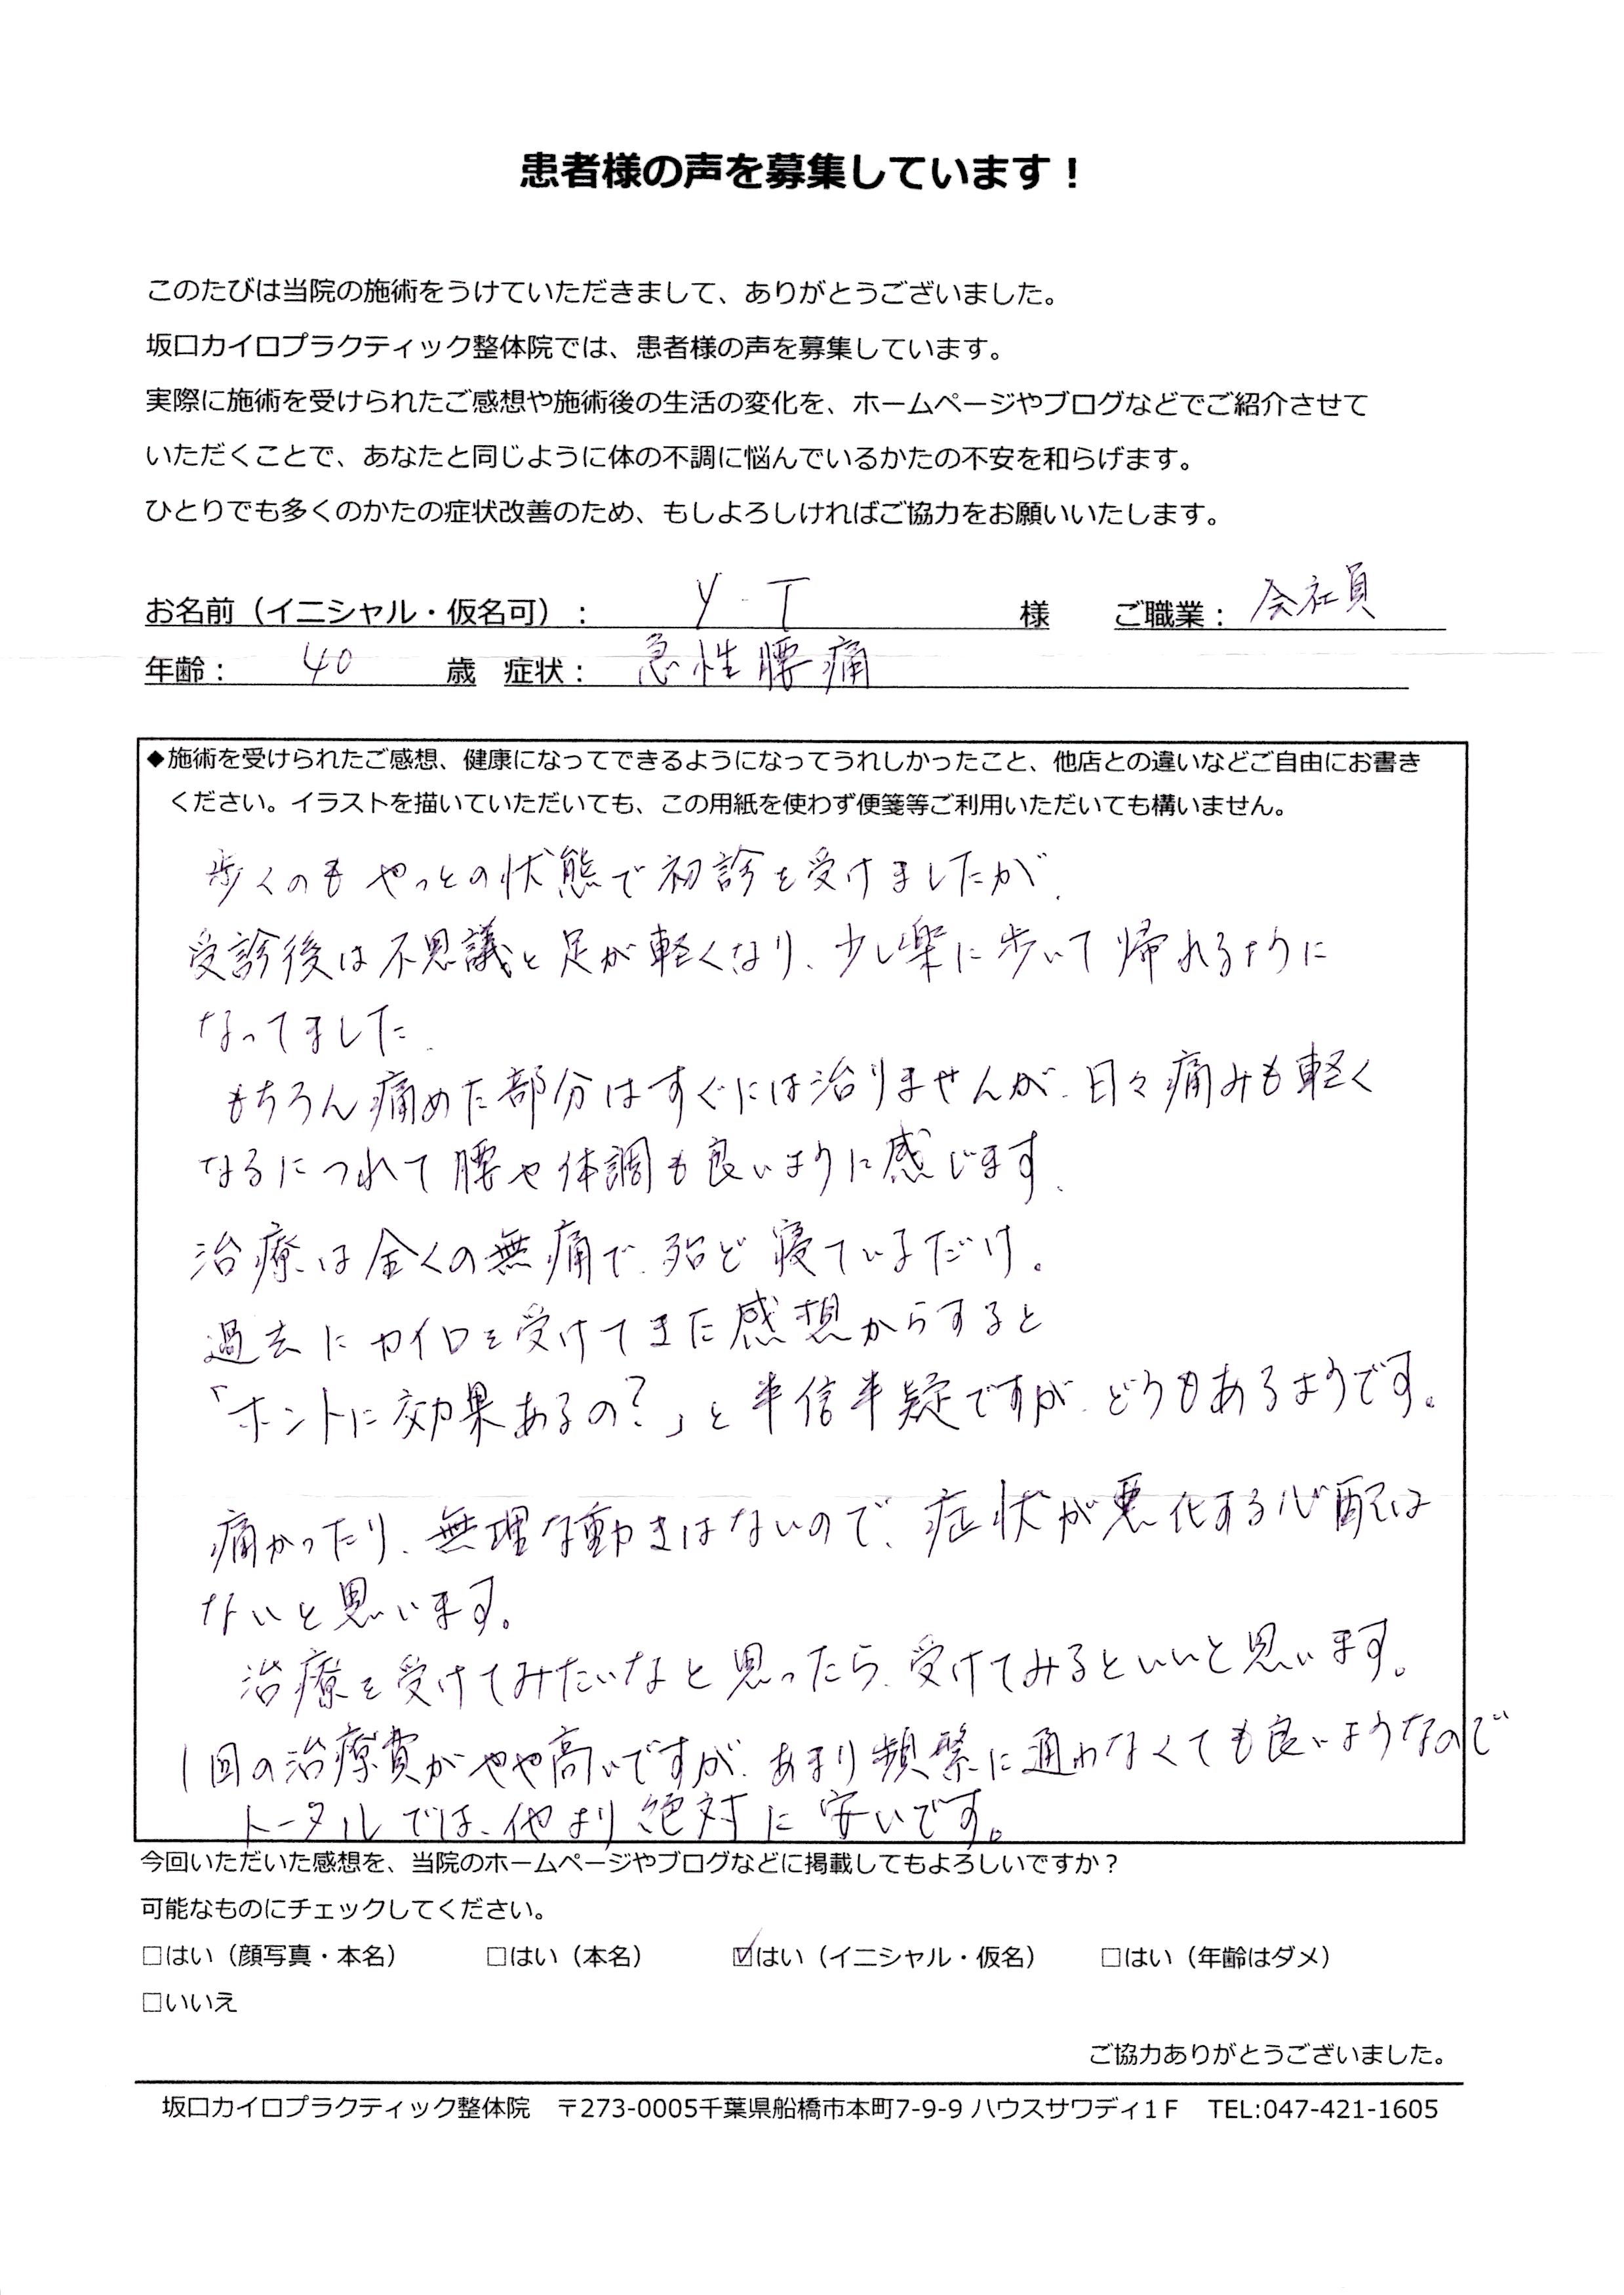 患者様の声を募集しています！
このたびは当院の施術をうけていただきまして、ありがとうございました。
坂口カイロプラクティック整体院では、患者様の声を募集しています。
実際に施術を受けられたご感想や施術後の生活の変化を、ホームページやブログなどでご紹介させて
いただくことで、あなたと同じように体の不調に悩んでいるかたの不安を和らげます。
ひとりでも多くのかたの症状改善のため、もしよろしければご協力をお願いいたします。
お名前（イニシャル・仮名可）： Y.T 様 ご職業： 会社員
年齢： 40 歳 症状： 急性腰痛
◆施術を受けられたご感想、健康になってできるようになってうれしかったこと、他店との違いなどご自由にお書き
ください。イラストを描いていただいても、この用紙を使わず便箋等ご利用いただいても構いません。
歩くのもやっとの状態で初診を受けましたが、
受診後は不思議と足が軽くなり、少し楽に歩いて帰れるように
なってました。
もちろん痛めた部分はすぐには治りませんが、日々痛みも軽く
なるにつれて腰や体調も良いように感じます。
治療は全くの無痛で、殆ど寝ているだけ。
過去にカイロを受けてきた感想からすると
「ホントに効果あるの？」と半信半疑ですが、どうもあるようです。
痛かったり、無理な動きはないので、症状が悪化する心配は
ないと思います。
治療を受けてみたいなと思ったら、受けてみるといいと思います。
1回の治療費がやや高いですが、あまり頻繁に通わなくても良いようなので
トータルでは、他より絶対に安いです。
今回いただいた感想を、当院のホームページやブログなどに掲載してもよろしいですか？
可能なものにチェックしてください。
□はい（顔写真・本名） □はい（本名） ☑はい（イニシャル・仮名） □はい（年齢はダメ）
□いいえ
ご協力ありがとうございました。
坂口カイロプラクティック整体院 〒273-0005千葉県船橋市本町7-9-9 ハウスサワディ1F TEL:047-421-1605